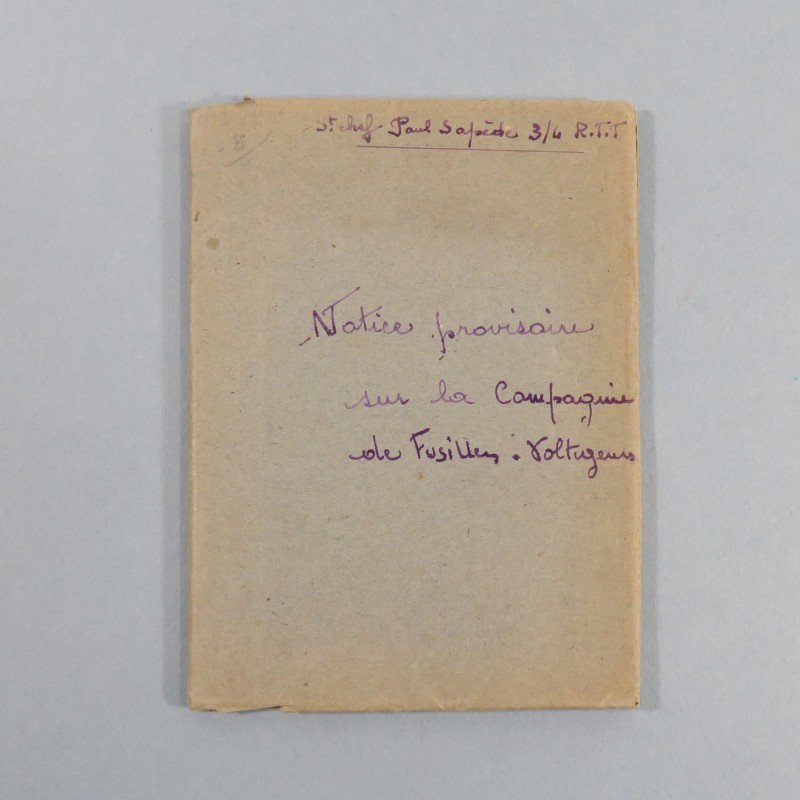 St chef Paul Sapède 3/4 R.T.T
8
Notice provisoire
sur la Compagnie
de Fusiliers. Voltigeurs